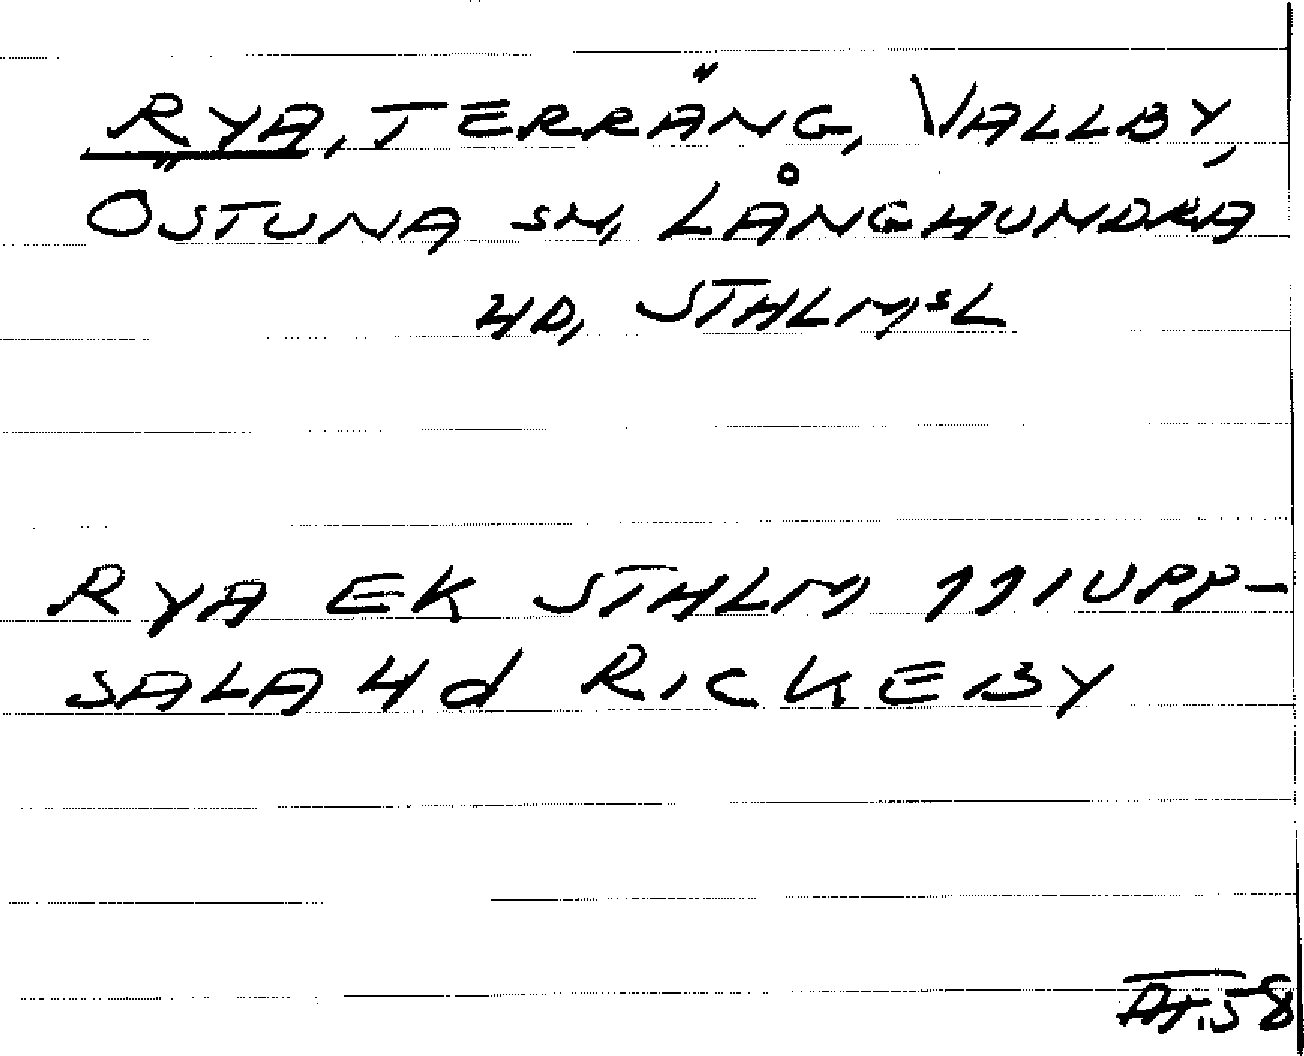 RYA, TERRÄNG, VALLBY,
ÖSTUNA SN, LÅNGHUNDRA
HD, STHLMSL
RYA EK STHLM 111 UPP-
SALA 4d RICKEBY